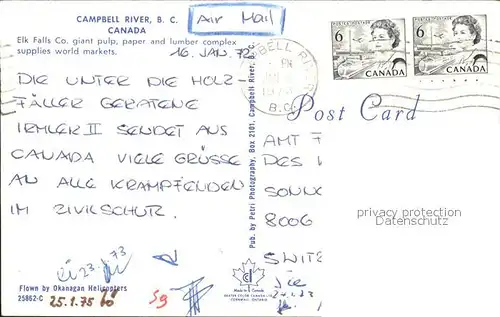 CAMPBELL RIVER, B. C.
CANADA
Air Mail
Elk Falls Co. giant pulp, paper and lumber complex
supplies world markets.
16. JAN. 72
DIE UNTER DIE HOLZ-
FÄLLER GERATENE
IRMLER II SENDET AUS
CANADA VIELE GRÜSSE
AN ALLE KRAMPFENDEN
IM ZIVILSCHUTZ.
23. 73
Flown by Okanagan Helicopters
25862-C
25.1.75
Sg
Pub. by Petri Photography, Box 2101, Campbell River, B.C.
Made in Canada
6
POSTES POSTAGE
CANADA
6
POSTES POSTAGE
CANADA
B.C.
Post Card
AMT
DES
SONN
8006
SWITZ
privacy protection
Datenschutz